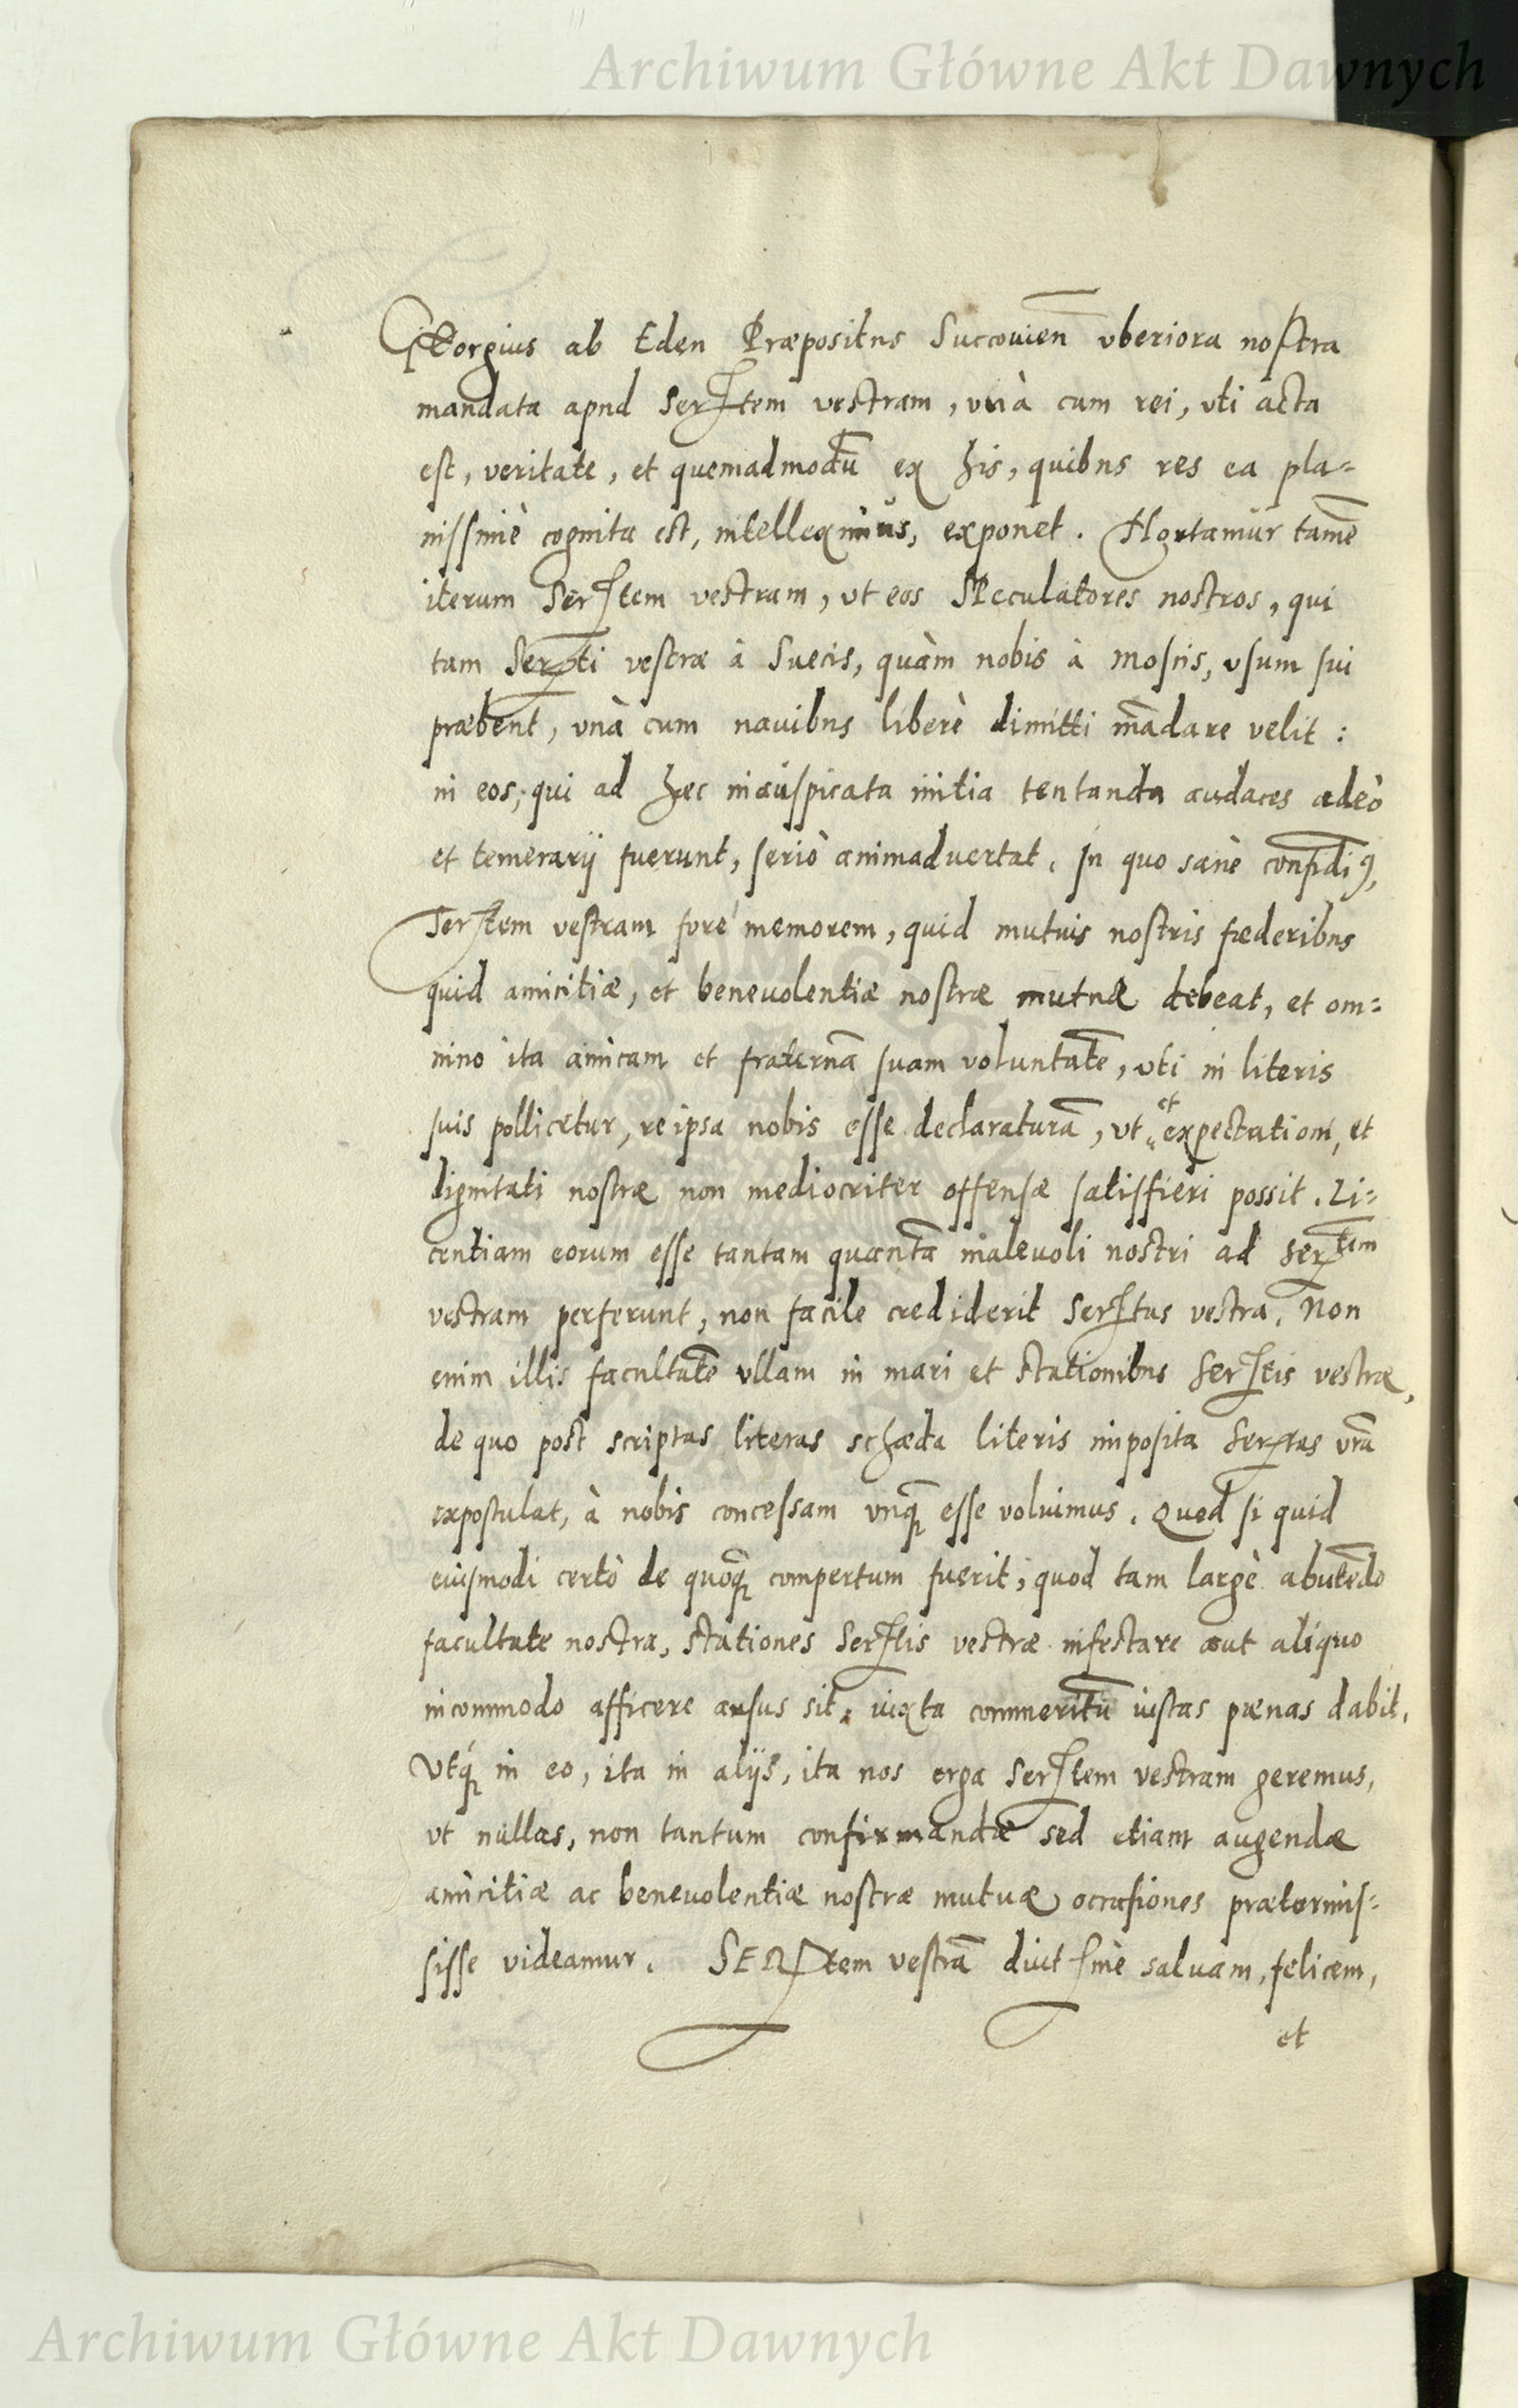 Archiwum Główne Akt Dawnych
GEorgius ab Eden Præpositus Succouien̄ vberiora nostra
mandata apud Serꝫtem vestram, vnà cum rei, vti acta
est, veritate, et quemadmodū ex his, quibus res ea pla=
nissimè cognita est, intelleximus, exponet. Hortamur tamē
iterum Serꝫtem vestram, vt eos SPeculatores nostros, qui
tam Serꝫti vestræ à Suecis, quàm nobis à Moscis, vsum sui
præbent, vnà cum nauibus liberè dimitti mādare velit:
in eos, qui ad hæc inauspicata initia tentanda audaces adeò
et temerarij fuerunt, seriò animaduertat. In quo sanè confidimꝰ,
Serꝫtem vestram fore memorem, quid mutuis nostris fœderibus
quid amicitiæ, et beneuolentiæ nostræ mutuæ debeat, et om=
nino ita amicam et fraternā suam voluntatē, vti in literis
suis pollicetur, reipsa nobis esse declaraturā, vt et expectationi, et
dignitati nostræ non mediocriter offensæ satisfieri possit. Li=
centiam eorum esse tantam quantā maleuoli nostri ad Serꝫtem
vestram perferunt, non facile crediderit Serꝫtas vestra. Non
enim illis facultatē vllam in mari et stationibus Serꝫtis vestræ,
de quo post scriptas literas schæda literis imposita Serꝫtas vrā
expostulat, à nobis concessam vnq̄ esse voluimus. Quod si quid
eiusmodi certò de quoq̄ compertum fuerit, quod tam largè abutēdo
facultate nostra, stationes Serꝫtis vestræ infestare aut aliquo
incommodo afficere ausus sit, iuxta commeritū iustas pœnas dabit.
Vtq́ in eo, ita in alijs, ita nos erga Serꝫtem vestram geremus,
vt nullas, non tantum confirmandæ sed etiam augendæ
amicitiæ ac beneuolentiæ nostræ mutuæ occasiones prætermis=
sisse videamur. SERꝫtem vestrā diutꝭsimè saluam, felicem,
et
Archiwum Główne Akt Dawnych